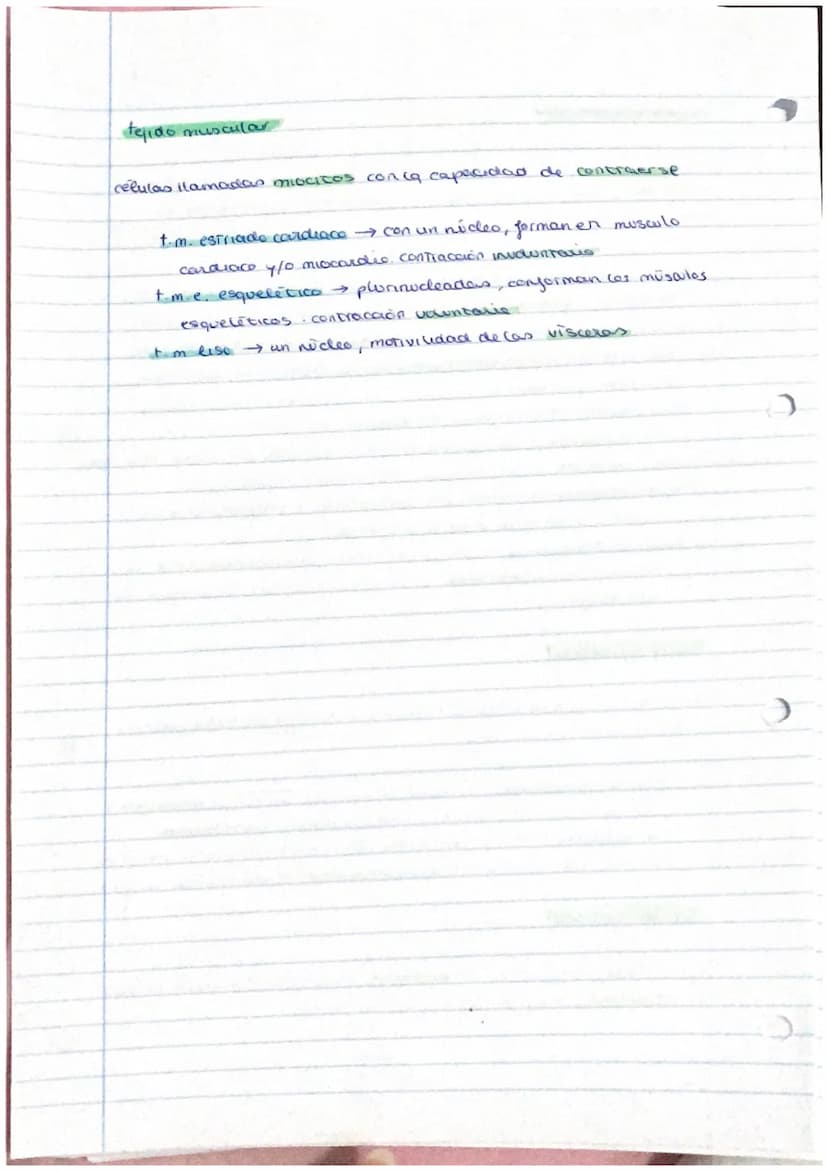 tejido muscular
células llamadas miocitos con la capacidad de contraerse
t.m. estriado cardiaco → con un núcleo, forman en musculo
cardiaco y/o miocardio. contracción involuntaria
t.m.e. esquelético → plurinucleadas, conforman los músculos
esqueléticos. contracción voluntaria
t.m liso → un núcleo, motivilidad de las vísceras